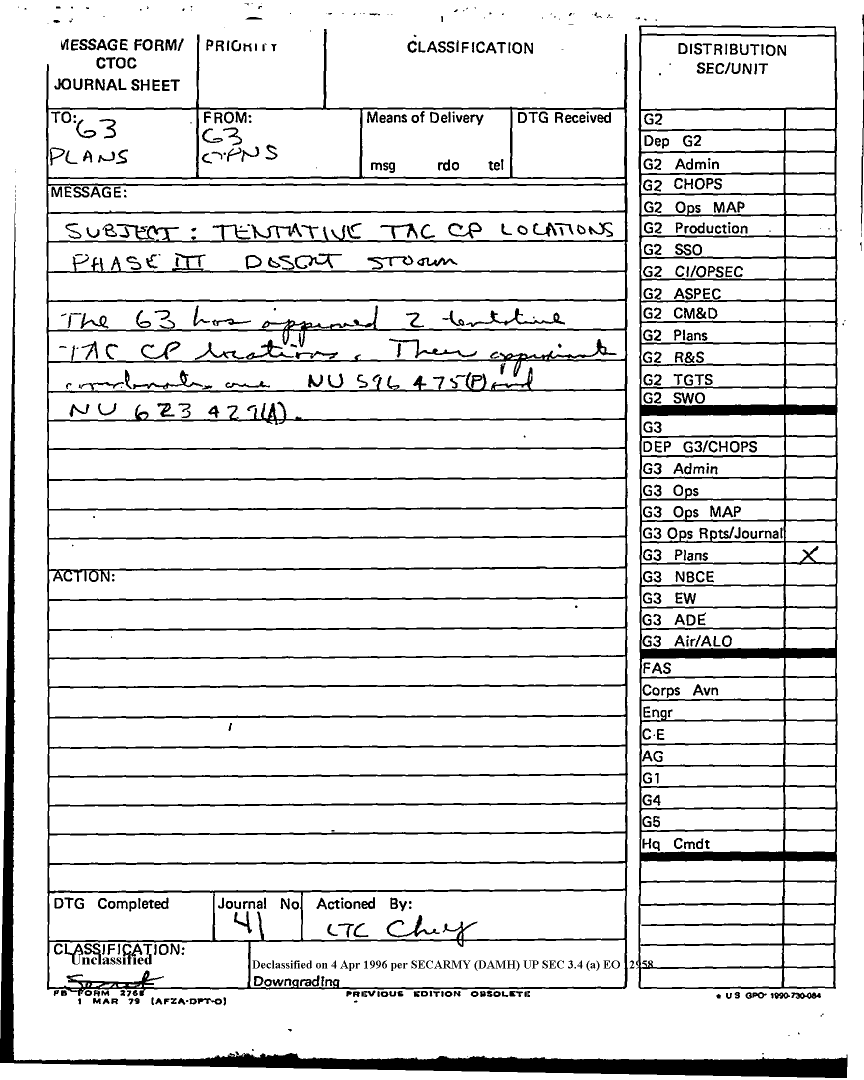 MESSAGE FORM/
CTOC
JOURNAL SHEET
PRIORITY
CLASSIFICATION
DISTRIBUTION
SEC/UNIT
TO: G3
PLANS
FROM:
G3
Means of Delivery
msg rdo tel
DTG Received
MESSAGE:
SUBJECT: TENTATIVE TAC CP LOCATIONS
PHASE III DESERT STORM
The G3 has approved 2 tentative
TAC CP locations. Their approximate
coordinates are NU 596 475(P) and
NU 623 429(A).
ACTION:
DTG Completed
Journal No
41
Actioned By:
LTC
CLASSIFICATION:
Unclassified
Secret
Declassified on 4 Apr 1996 per SECARMY (DAMH) UP SEC 3.4 (a) EO 12958
Downgrading
FB FORM 2768
1 MAR 79 (AFZA-DPT-O)
PREVIOUS EDITION OBSOLETE
U S GPO 1990-730-084
G2
Dep G2
G2 Admin
G2 CHOPS
G2 Ops MAP
G2 Production
G2 SSO
G2 CI/OPSEC
G2 ASPEC
G2 CM&D
G2 Plans
G2 R&S
G2 TGTS
G2 SWO
G3
DEP G3/CHOPS
G3 Admin
G3 Ops
G3 Ops MAP
G3 Ops Rpts/Journal
G3 Plans X
G3 NBCE
G3 EW
G3 ADE
G3 Air/ALO
FAS
Corps Avn
Engr
C-E
AG
G1
G4
G5
Hq Cmdt